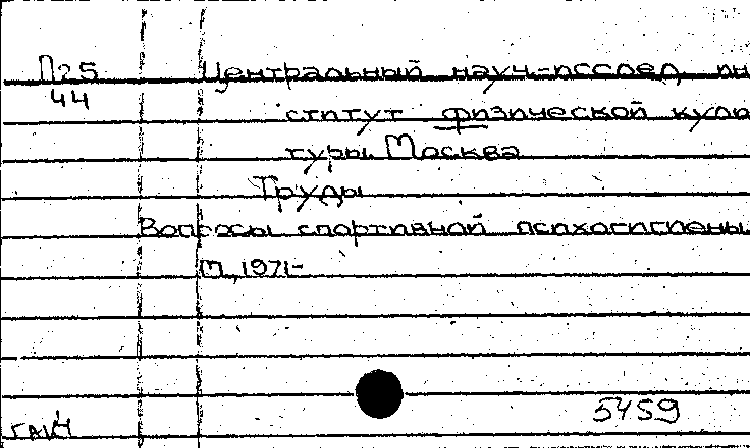 П25 Центральный науч-исслед. ин
44 ститут физической куль
туры. Москва
Труды
Вопросы спортивной психогигиены
М., 1971-
5459